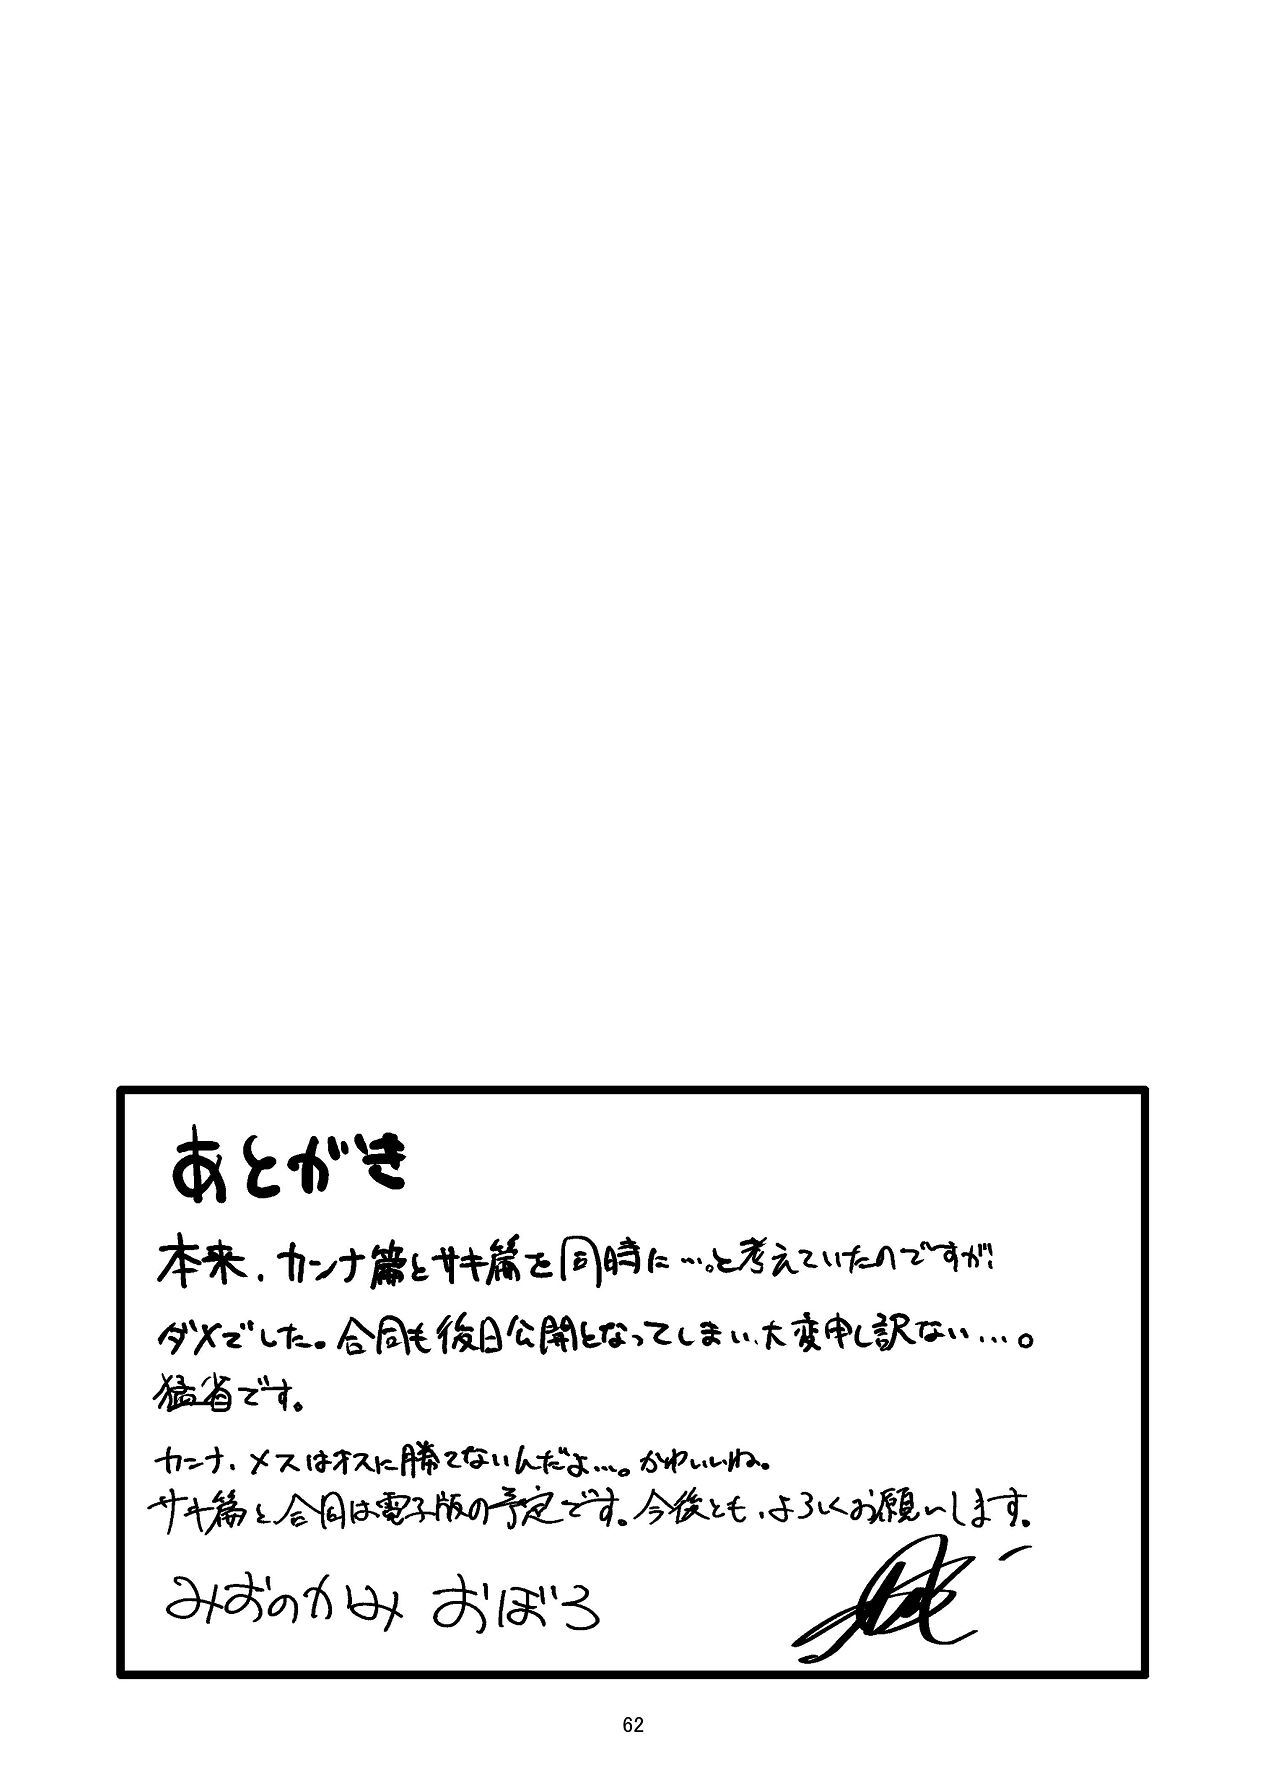 あとがき
本来、カンナ篇とサキ篇を同時に…。と考えていたのですが!
ダメでした。合同も後日公開となってしまい、大変申し訳ない…。
猛省です。
カンナ、メスはオスに勝てないんだよ…。かわいいね。
サキ篇と合同は電子版の予定です。今後とも、よろしくお願いします。
みおのかみ おぼろ
62